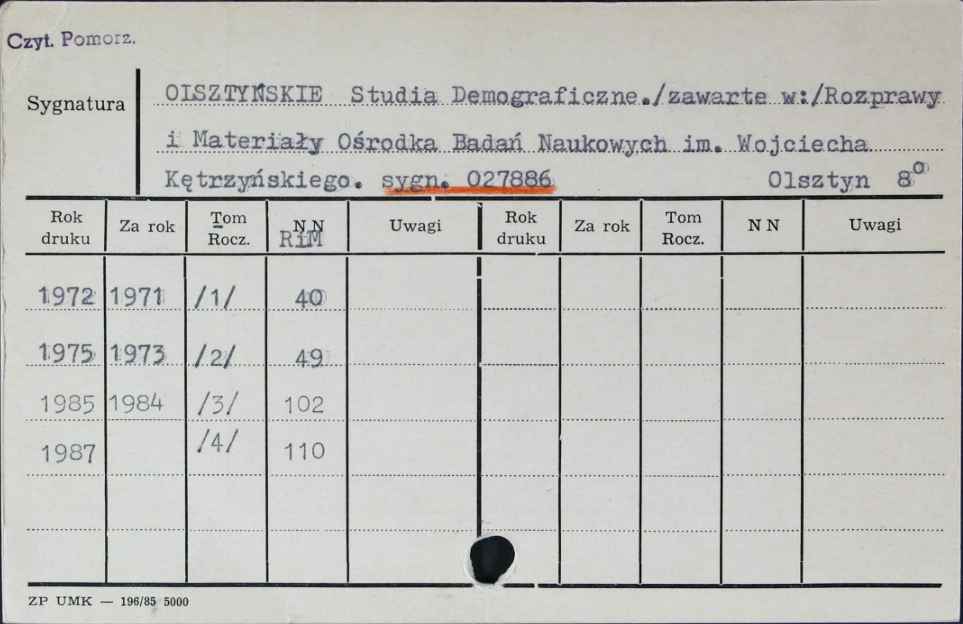 Czyt. Pomorz.
Sygnatura
OLSZTYŃSKIE Studia Demograficzne./zawarte w:/Rozprawy
i Materiały Ośrodka Badań Naukowych im. Wojciecha
Kętrzyńskiego. sygn. 027886 Olsztyn 8°
Rok druku Za rok Tom Rocz. NN RiM Uwagi Rok druku Za rok Tom Rocz. NN Uwagi
1972 1971 /1/ 40
1975 1973 /2/ 49
1985 1984 /3/ 102
1987 /4/ 110
ZP UMK — 196/85 5000